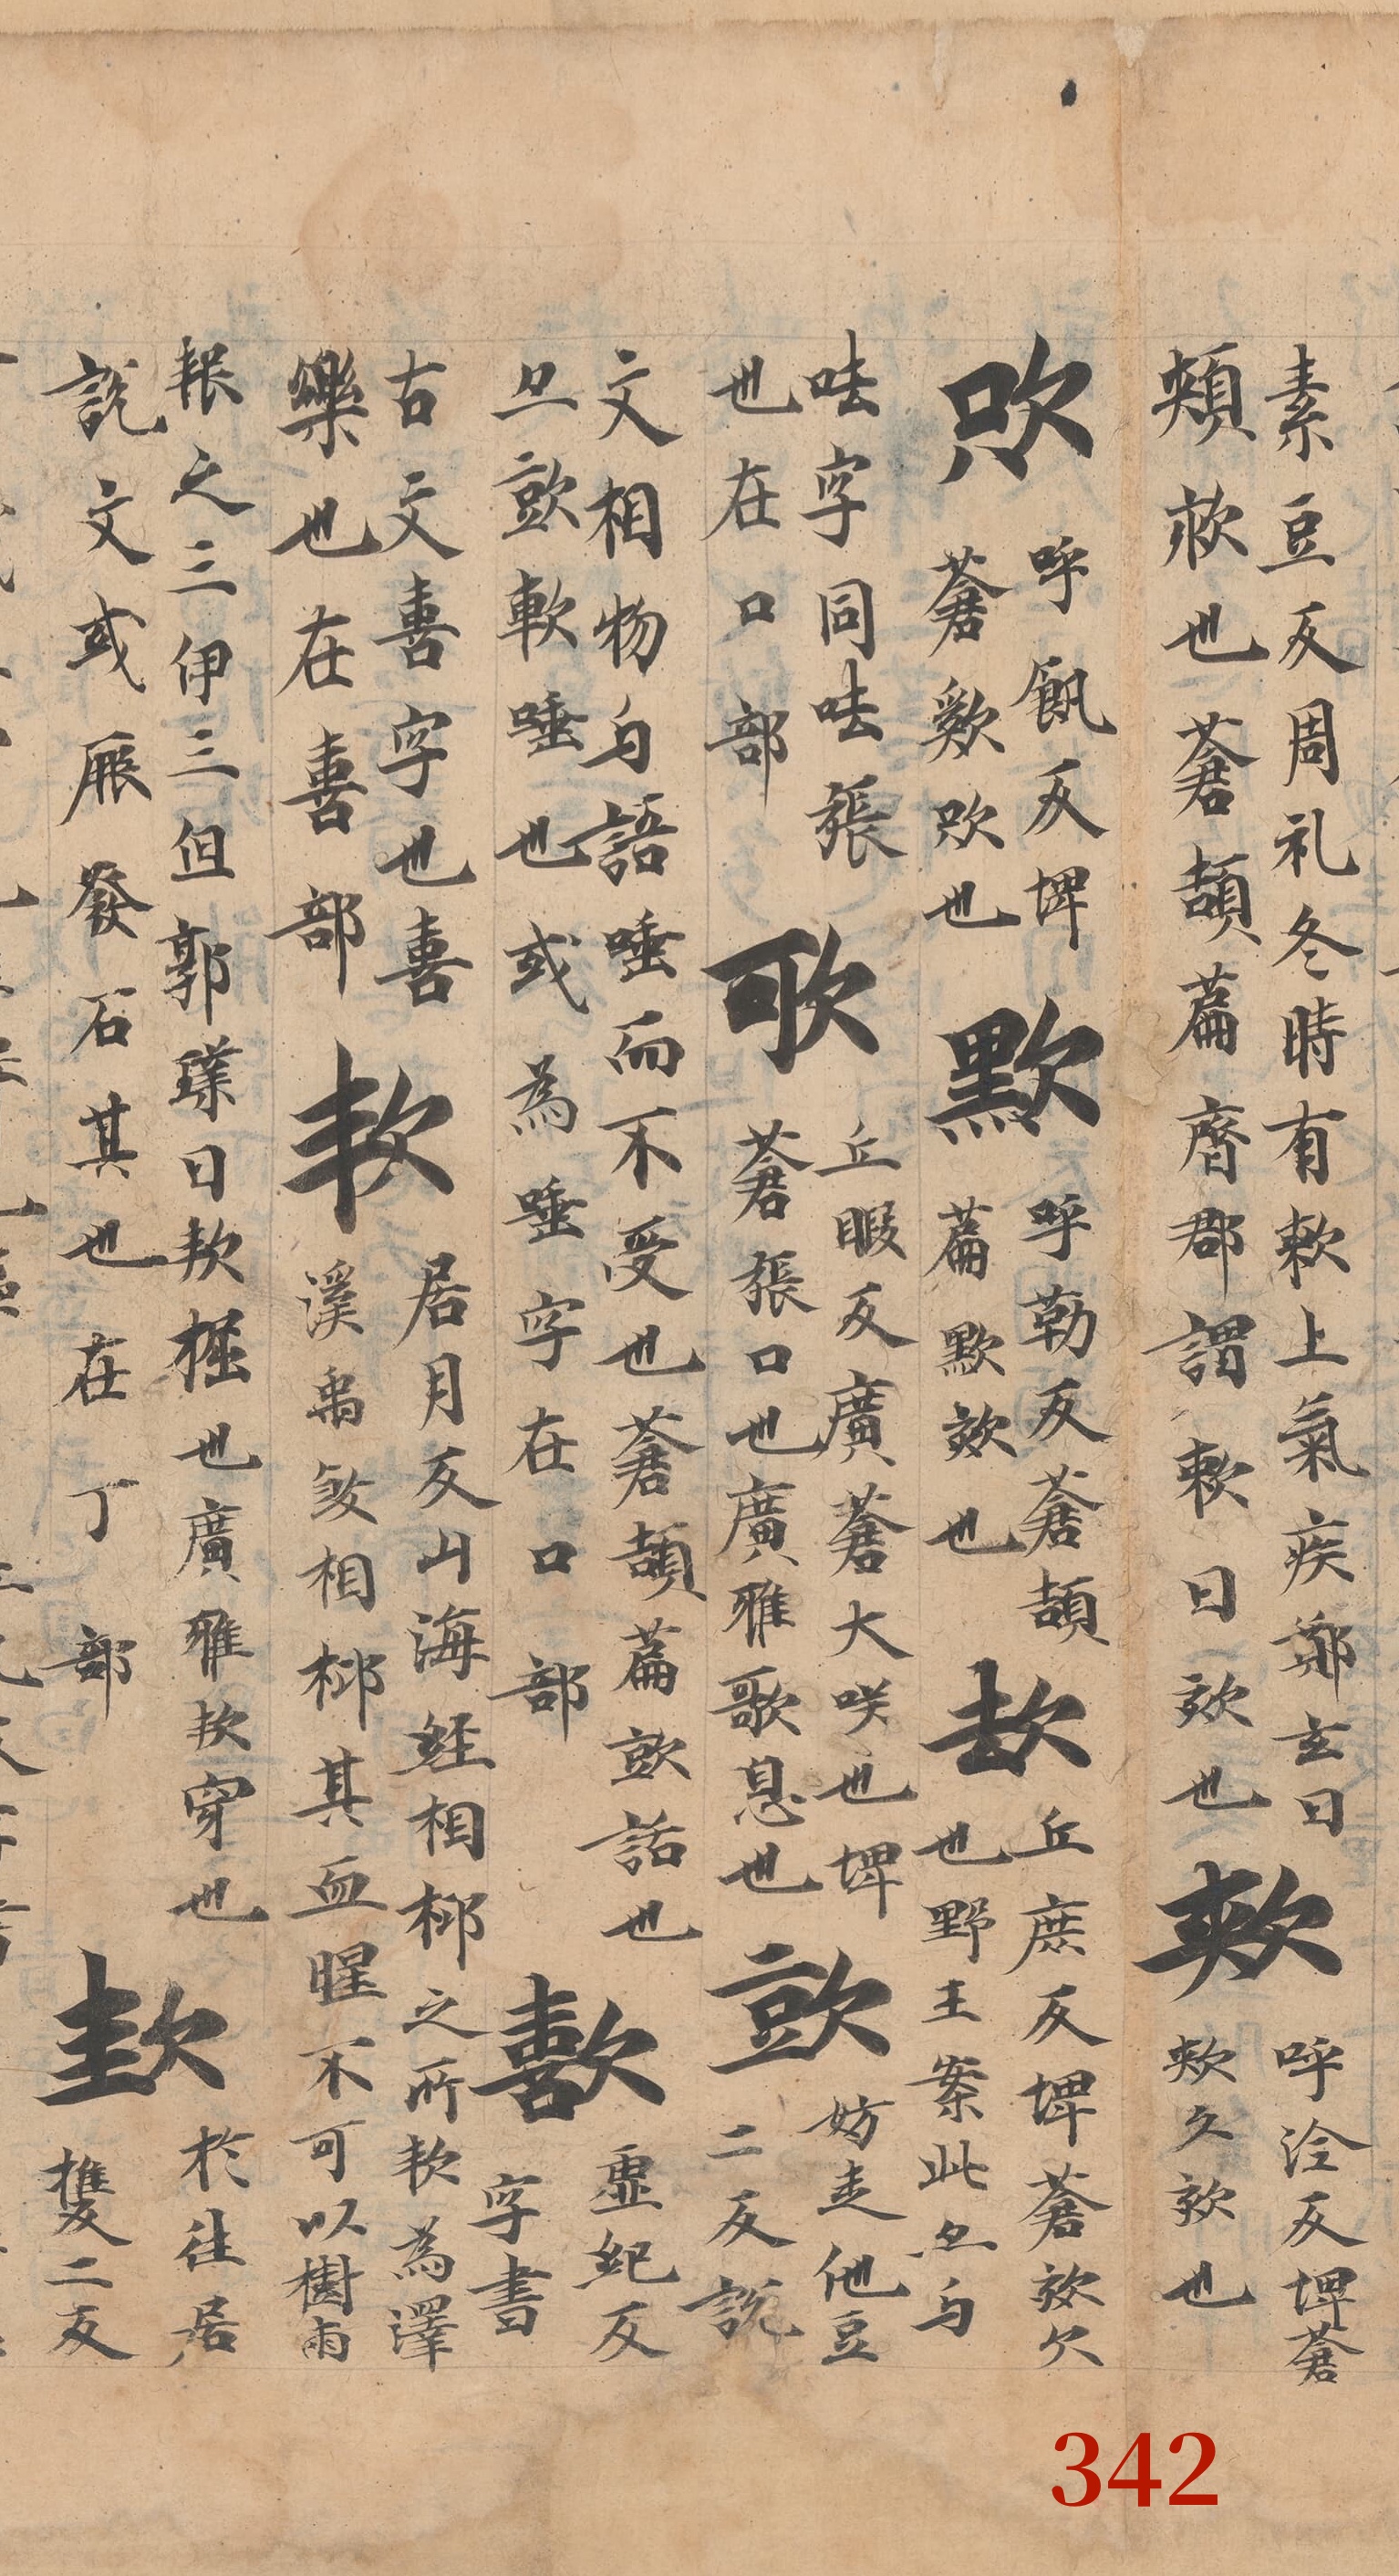 素豆反周礼冬時有欶上氣疾鄭玄曰
頰欶也蒼頡篇齊郡謂欶曰欬也
㰰
呼洽反埤蒼
㰰欠欬也
呼飢反埤
蒼歎也
㱄
呼勒反蒼頡
篇㱄欬也
㰦
丘庶反埤蒼欬欠
也野王案此亦与
呿字同呿張
也在口部
㰤
丘暇反廣蒼大咲也埤
蒼張口也廣雅歌息也
㰴
妨走他豆
二反說
文相物与語唾而不受也蒼頡篇㰴詬也
亦㰴軟唾也或為唾字在口部
歖
虛紀反
字書
古文喜字也喜
樂也在喜部
欮
居月反山海經相柳之所欮為澤
溪禹煞相柳其血腥不可以樹雨
報之三伊三但郭璞曰欮掘也廣雅欮穿也
說文或厥發石其也在丁部
於往居
二反
342